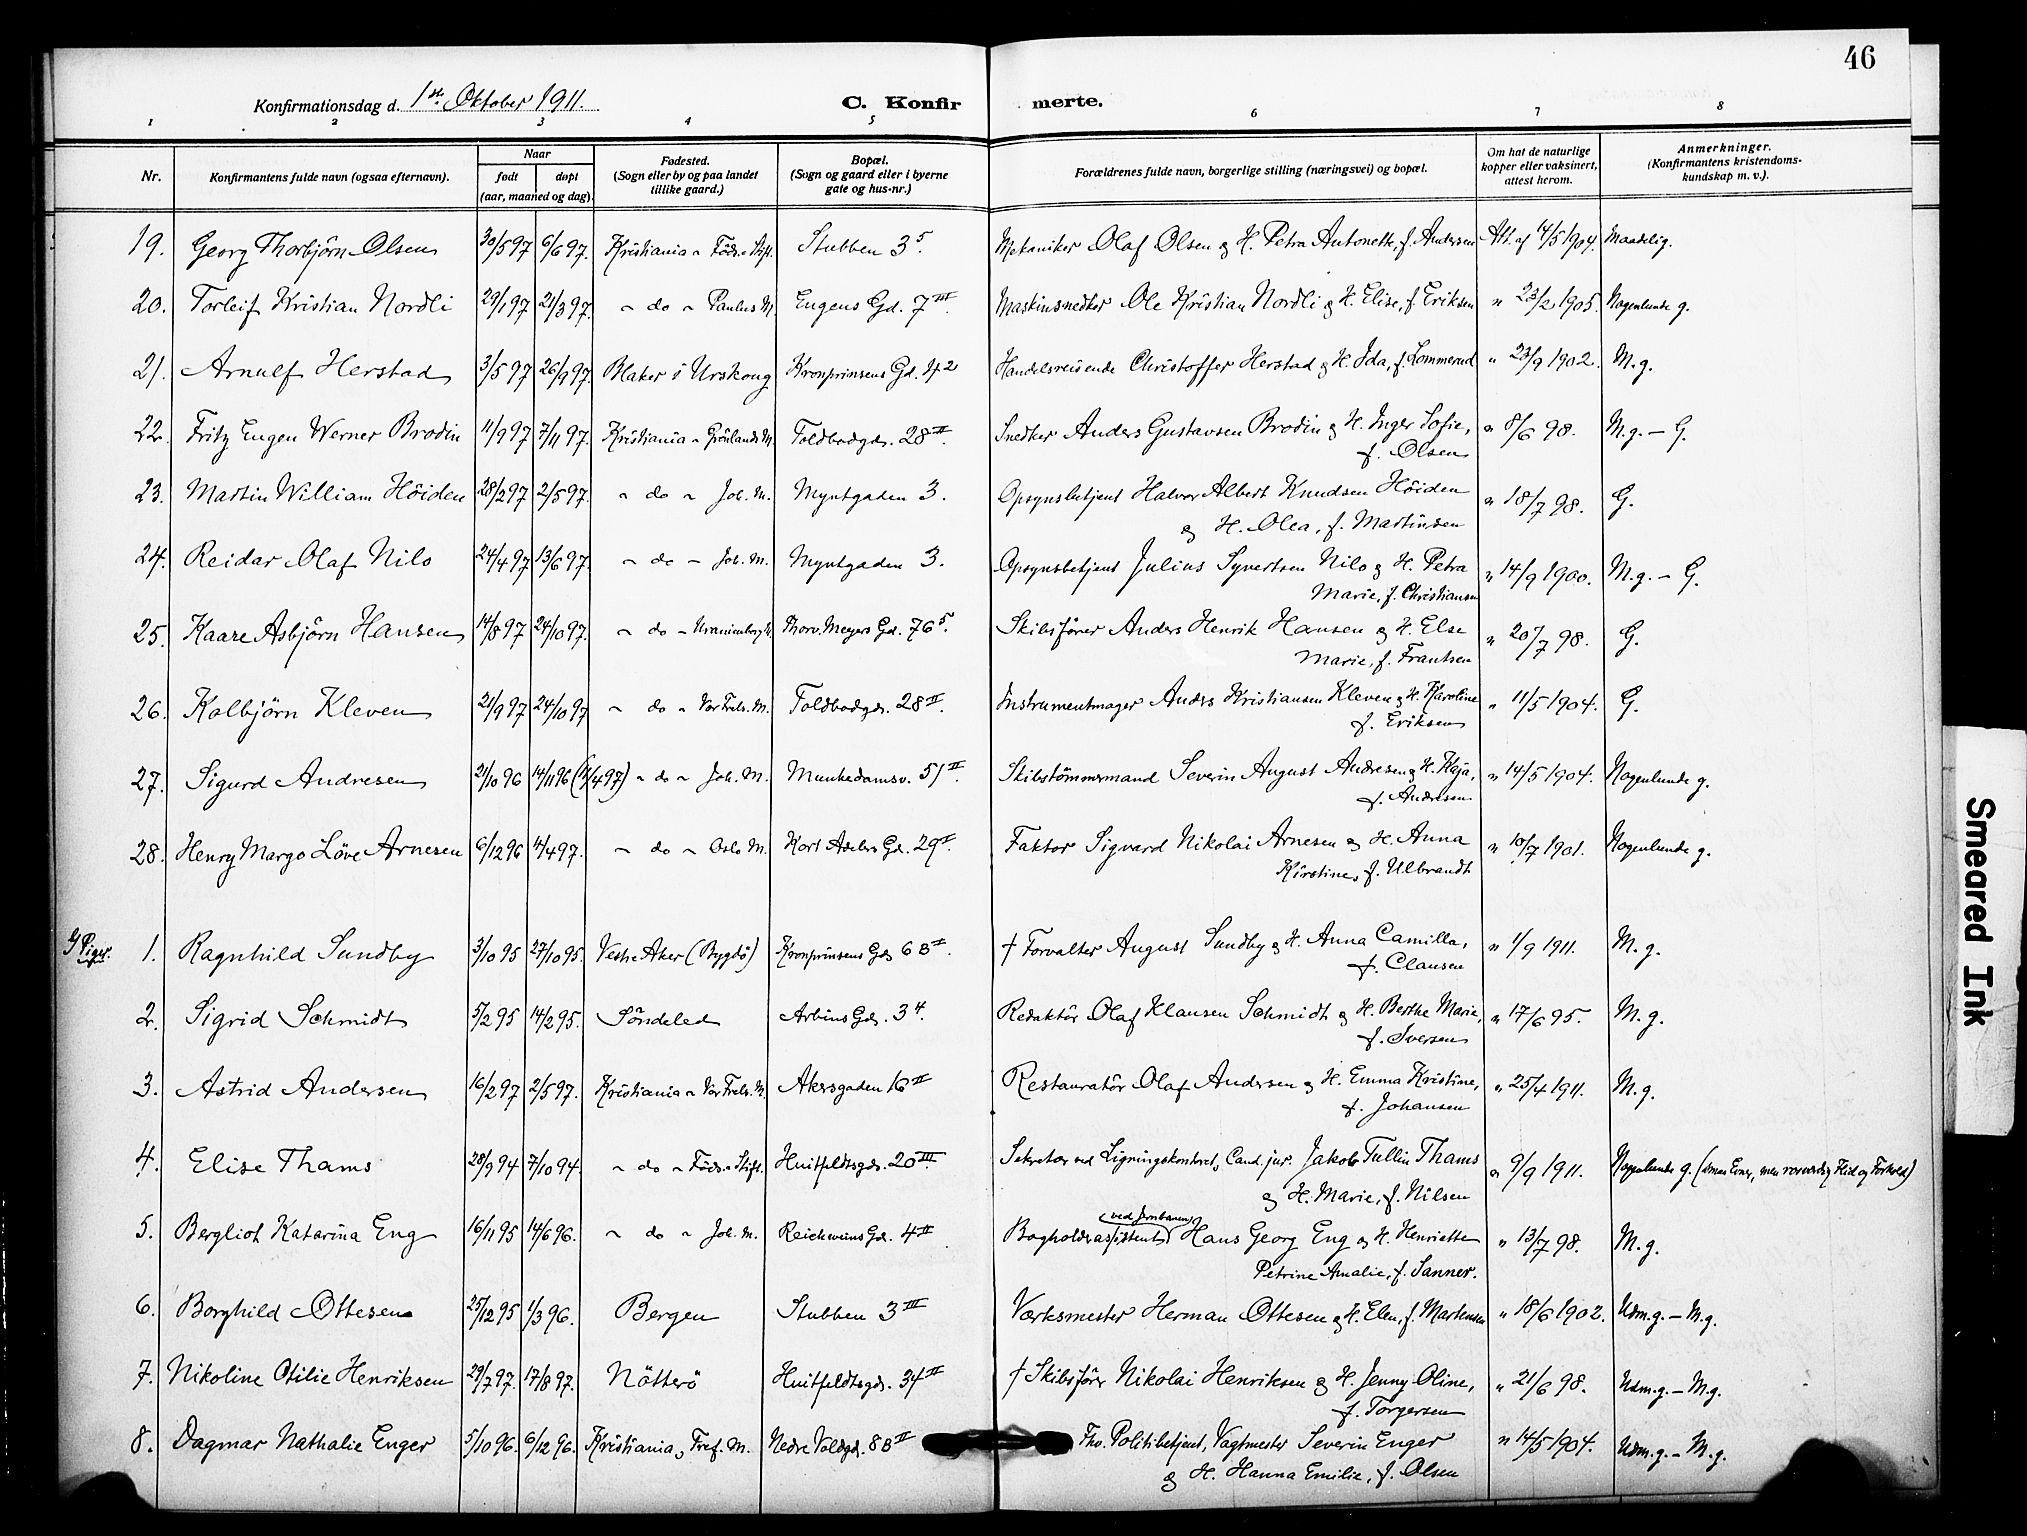 46
Konfirmationsdag d. 1ste Oktober 1911.
C. Konfir merte.
1 2 3 4 5 6 7 8
Nr.
Konfirmantens fulde navn (ogsaa efternavn).
Naar
født døpt
(aar, maaned og dag)
Fødested.
(Sogn eller by og paa landet
tillike gaard.)
Bopæl.
(Sogn og gaard eller i byerne
gate og hus-nr.)
Forældrenes fulde navn, borgerlige stilling (næringsvei) og bopæl.
Om hat de naturlige
kopper eller vaksinert,
attest herom.
Anmerkninger.
(Konfirmantens kristendoms-
kundskap m. v.).
19. Georg Thorbjörn Olsen 30/5 97 6/6 97. Kristiania " Föds. Stift. Stubben 3 5. Mekaniker Olaf Olsen & H. Petra Antonette, f. Andersen Att. af 14/5 1904. Maadelig.
20. Torleif Kristian Nordli 29/1 97 21/3 97. " do " Paulus M. Eugens Gd. 7 III. Maskinsnedker Ole Kristian Nordli & H. Elise, f. Eriksen " 23/2 1905. Nogenlunde g.
21. Arnulf Herstad 3/5 97 26/9 97. Blaker i Urskoug Kronprinsens Gd. 42 Handelsreisende Christoffer Herstad & H. Ida, f. Lommerud " 23/9 1902. M.g.
22. Fritz Eugen Werner Brodin 11/9 97 7/11 97. Kristiania " Grönlands M. Toldbodgds. 28 II. Snedker Anders Gustavsen Brodin & H. Inger Sofie, " 8/6 98. M.g. - G.
f. Olsen
23. Martin William Höiden 28/2 97 2/5 97. " do " Joh. M. Myntgaden 3. Opsynsbetjent Halvor Albert Knudsen Höiden " 18/7 98. G.
& H. Olea, f. Martinsen
24. Reidar Olaf Nilo 24/4 97 13/6 97. " do " Joh. M. Myntgaden 3. Opsynsbetjent Julius Syvertsen Nilo & H. Petra " 14/9 1900. M.g. - G.
Marie, f. Christiansen
25. Kaare Asbjörn Hansen 14/8 97 24/10 97. " do " Uranienborg M. Thorv. Meyers Gd. 76 5. Skibsförer Anders Henrik Hansen & H. Else " 20/7 98. G.
Marie, f. Frantsen
26. Kolbjörn Kleven 21/9 97 24/10 97 " do " Vor Frels. M. Toldbodgds. 28 II. Instrumentmager Anders Kristiansen Kleven & H. Karoline " 11/5 1904. G.
f. Eriksen
27. Sigurd Andresen 21/10 96 14/11 96 ( /4 97) " do " Joh. M. Munkedamsv. 51 II. Skibstömmermand Severin August Andresen & H. Kaja, " 14/5 1904. Nogenlunde g.
f. Andresen
28. Henry Margo Löve Arnesen 6/12 96 4/4 97. " do " Oslo M. Kort Adelers Gd. 29 I. Faktor Sigvard Nikolai Arnesen & H. Anna " 10/7 1901. Nogenlunde g.
Kirstine, f. Ulbrandt
Piger. 1. Ragnhild Sundby 3/10 95 27/10 95. Vestre Aker (Bygdö) Kronprinsens Gd. 6 B II. † Forvalter August Sundby & H. Anna Camilla, " 1/9 1911. M.g.
f. Clausen
2. Sigrid Schmidt 5/2 95 14/2 95. Söndeled Arbins Gd. 3 4. Redaktör Olaf Klausen Schmidt & H. Berthe Marie, " 17/6 95. M.g.
f. Iversen
3. Astrid Andersen 16/2 97 2/5 97. Kristiania " Vor Frels. M. Akersgaden 16 II Restauratör Olaf Andersen & H. Emma Kristine, " 25/4 1911. M.g.
f. Johansen
4. Elise Thams 28/9 94 7/10 94. " do " Föds. Stift. Huitfeldtsgds. 20 III. Sekretær ved Ligningskontoret, Cand. jur. Jakob Tullin Thams " 9/9 1911. Nogenlunde g. (smaa Evner, men rosværdig Flid og Forhold)
& H. Marie, f. Nilsen
5. Bergliot Katarina Eng 16/11 95 14/6 96. " do " Joh. M. Reichweins Gd. 4 II Bogholderassistent (ved Jernbanen) Hans Georg Eng & H. Henriette " 13/7 98. M.g.
Petrine Amalie, f. Sanner.
6. Borghild Ottesen 25/12 95 1/3 96. Bergen Stubben 3 III Værksmester Herman Ottesen & H. Elen, f. Martensen " 18/6 1902. Udm.g. - M.g.
7. Nikoline Otilie Henriksen 29/7 97. 17/8 97. Nötterö Huitfeldtsgds. 34 II † Skibsförer Nikolai Henriksen & H. Jenny Oline, " 21/6 98. Udm.g. - M.g.
f. Torgersen
8. Dagmar Nathalie Enger 5/10 96. 6/12 96. Kristiania, Tref. M. Nedre Voldgd. 8 B II Fhv. Politibetjent, Vagtmester Severin Enger " 14/5 1904. Udm.g. - M.g.
& H. Hanna Emilie, f. Olsen
Smeared Ink